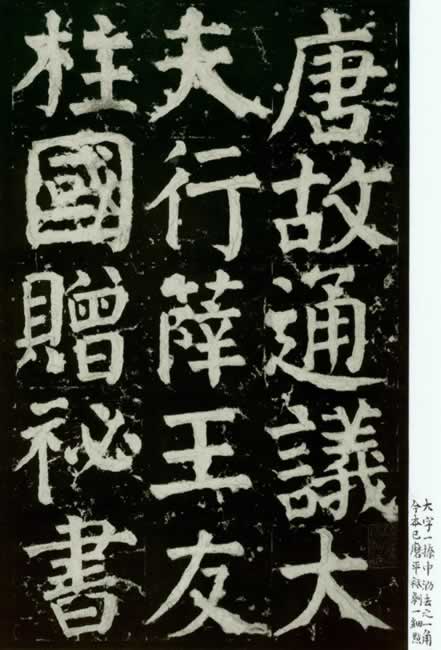 唐故通議大
夫行薛王友
柱國贈祕書
大字一捺中泐去之一角
今本已磨平祇剩一細點